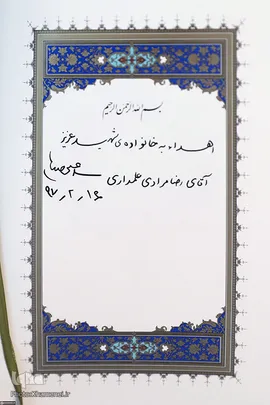 بسم الله الرحمن الرحیم
اهداء به خانواده‌ی شهید عزیز
آقای رضا مرادی علمداری
۹۷٫۲٫۱۶